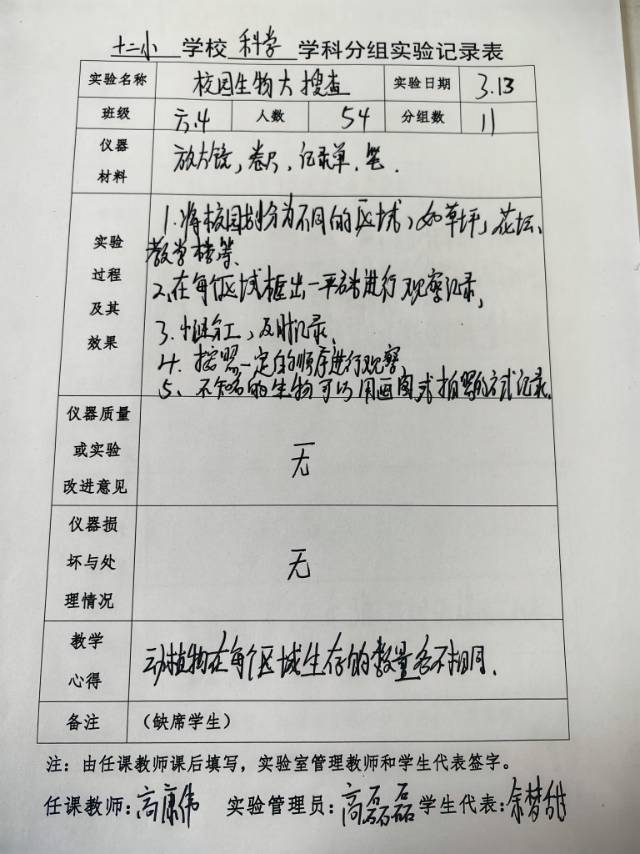 十二小 学校 科学 学科分组实验记录表
实验名称 校园生物大搜查 实验日期 3.13
班级 六.4 人数 54 分组数 11
仪器材料 放大镜,卷尺,记录单,笔.
实验过程及其效果
1.将校园划分为不同的区域,如草坪,花坛、
教学楼等.
2.在每个区域框出一平方米进行观察记录,
3.小组分工,及时记录.
4.按照一定的顺序进行观察
5、不知名的生物可以用画图或拍照的方式记录.
仪器质量或实验改进意见 无
仪器损坏与处理情况 无
教学心得 动植物在每个区域生存的数量各不相同.
备注 (缺席学生)
注:由任课教师课后填写,实验室管理教师和学生代表签字。
任课教师:高康伟 实验管理员:高磊磊 学生代表:余梦甜